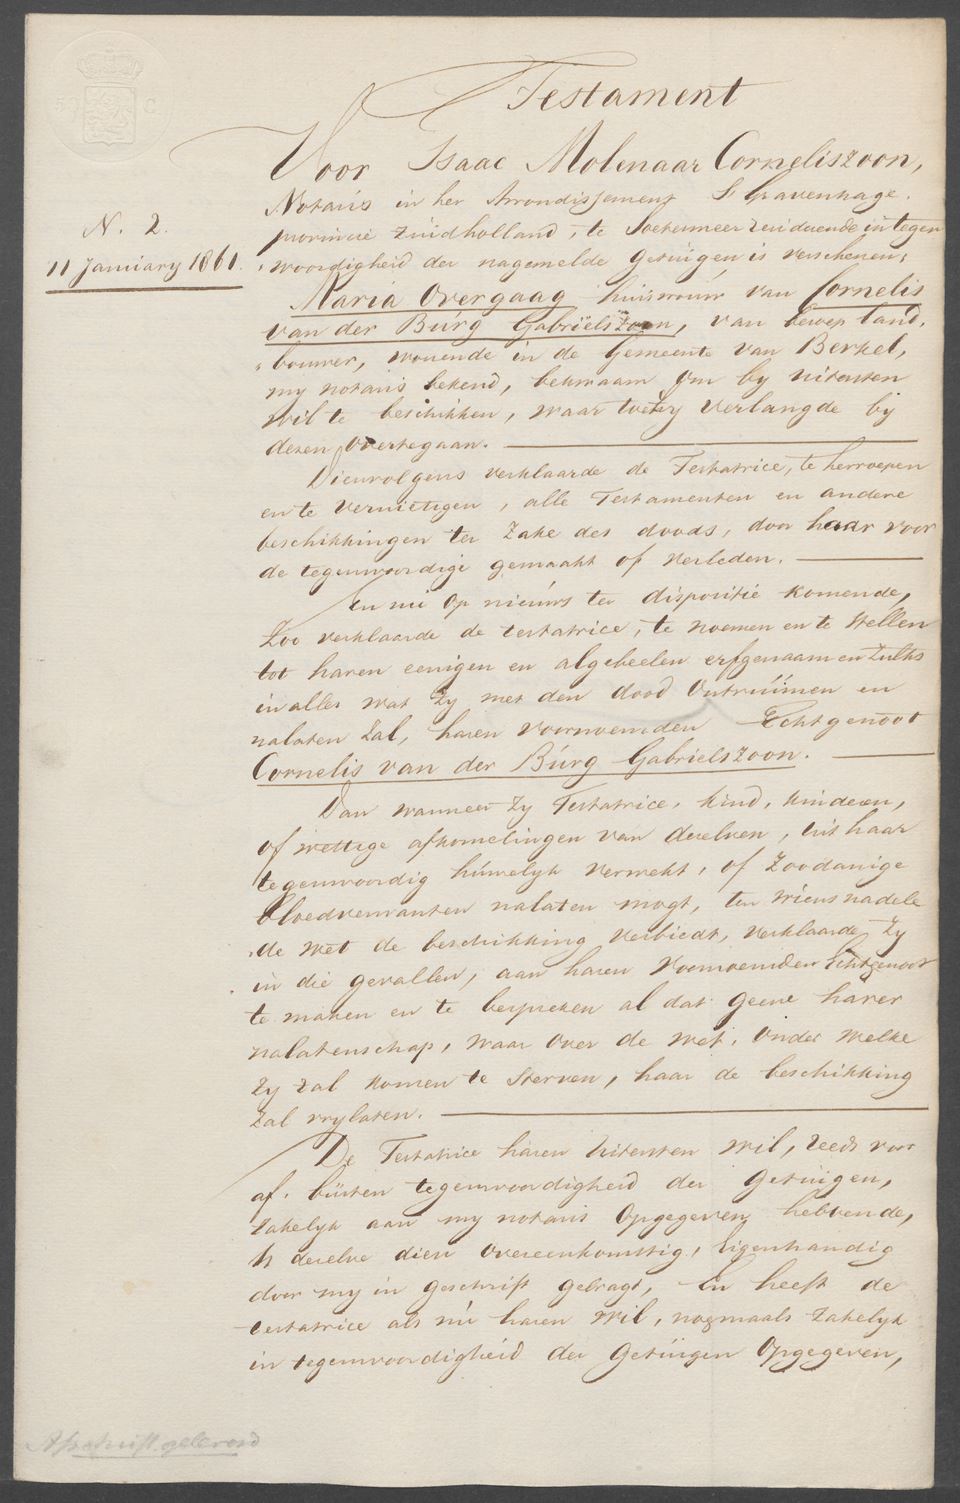 Testament
Voor Isaac Molenaar Corneliszoon,
Notaris in het Arrondissement 's Gravenhage.
provincie Zuidholland, te Soetermeer residerende in tegen
N. 2.
11 January 1861.
woordigheid der nagemelde getuigen is verschenen,
Maria Overgaag huisvrouw van Cornelis
van der Burg Gabriëlszoon, van beroep land,
bouwer, wonende in de Gemeente van Berkel,
my notaris bekend, bekwaam om by uitersten
wil te beschikken, waar toe zy verlangde bij
dezen overtegaan.
Dienvolgens verklaarde de Testatrice, te herroepen
en te vernietigen, alle Testamenten en andere
beschikkingen ter zake des doods, door haar voor
de tegenwoordige gemaakt of verleden.
En nu op nieuws ter dispositie komende,
Zoo verklaarde de testatrice, te noemen en te stellen
tot haren eenigen en algeheelen erfgenaam en zulks
in alles wat zy met den dood ontruimen en
nalaten zal, haren voornoemden Echtgenoot
Cornelis van der Burg Gabrielszoon.
Dan wanneer zy Testatrice, kind, kinderen,
of wettige afkomelingen van dezelven, uit haar
tegenwoordig huwelyk verwekt, of zoodanige
bloedverwanten nalaten mogt, ten wiens nadele
de wet de beschikking verbiedt, verklaarde zy
in die gevallen, aan haren voornoemden Echtgenoot
te maken en te bespreken al dat geene harer
nalatenschap, waar over de wet, onder welke
zy zal komen te sterven, haar de beschikking
zal vrylaten.
De Testatrice haren uitersten wil, reeds voor
af, buiten tegenwoordigheid der getuigen,
zakelyk aan my notaris opgegeven hebbende,
is dezelve dien overeenkomstig, eigenhandig
door my in geschrift gebragt, En heeft de
testatrice als nu haren wil, nogmaals zakelyk
in tegenwoordigheid der getuigen opgegeven,
Afschrift geleverd